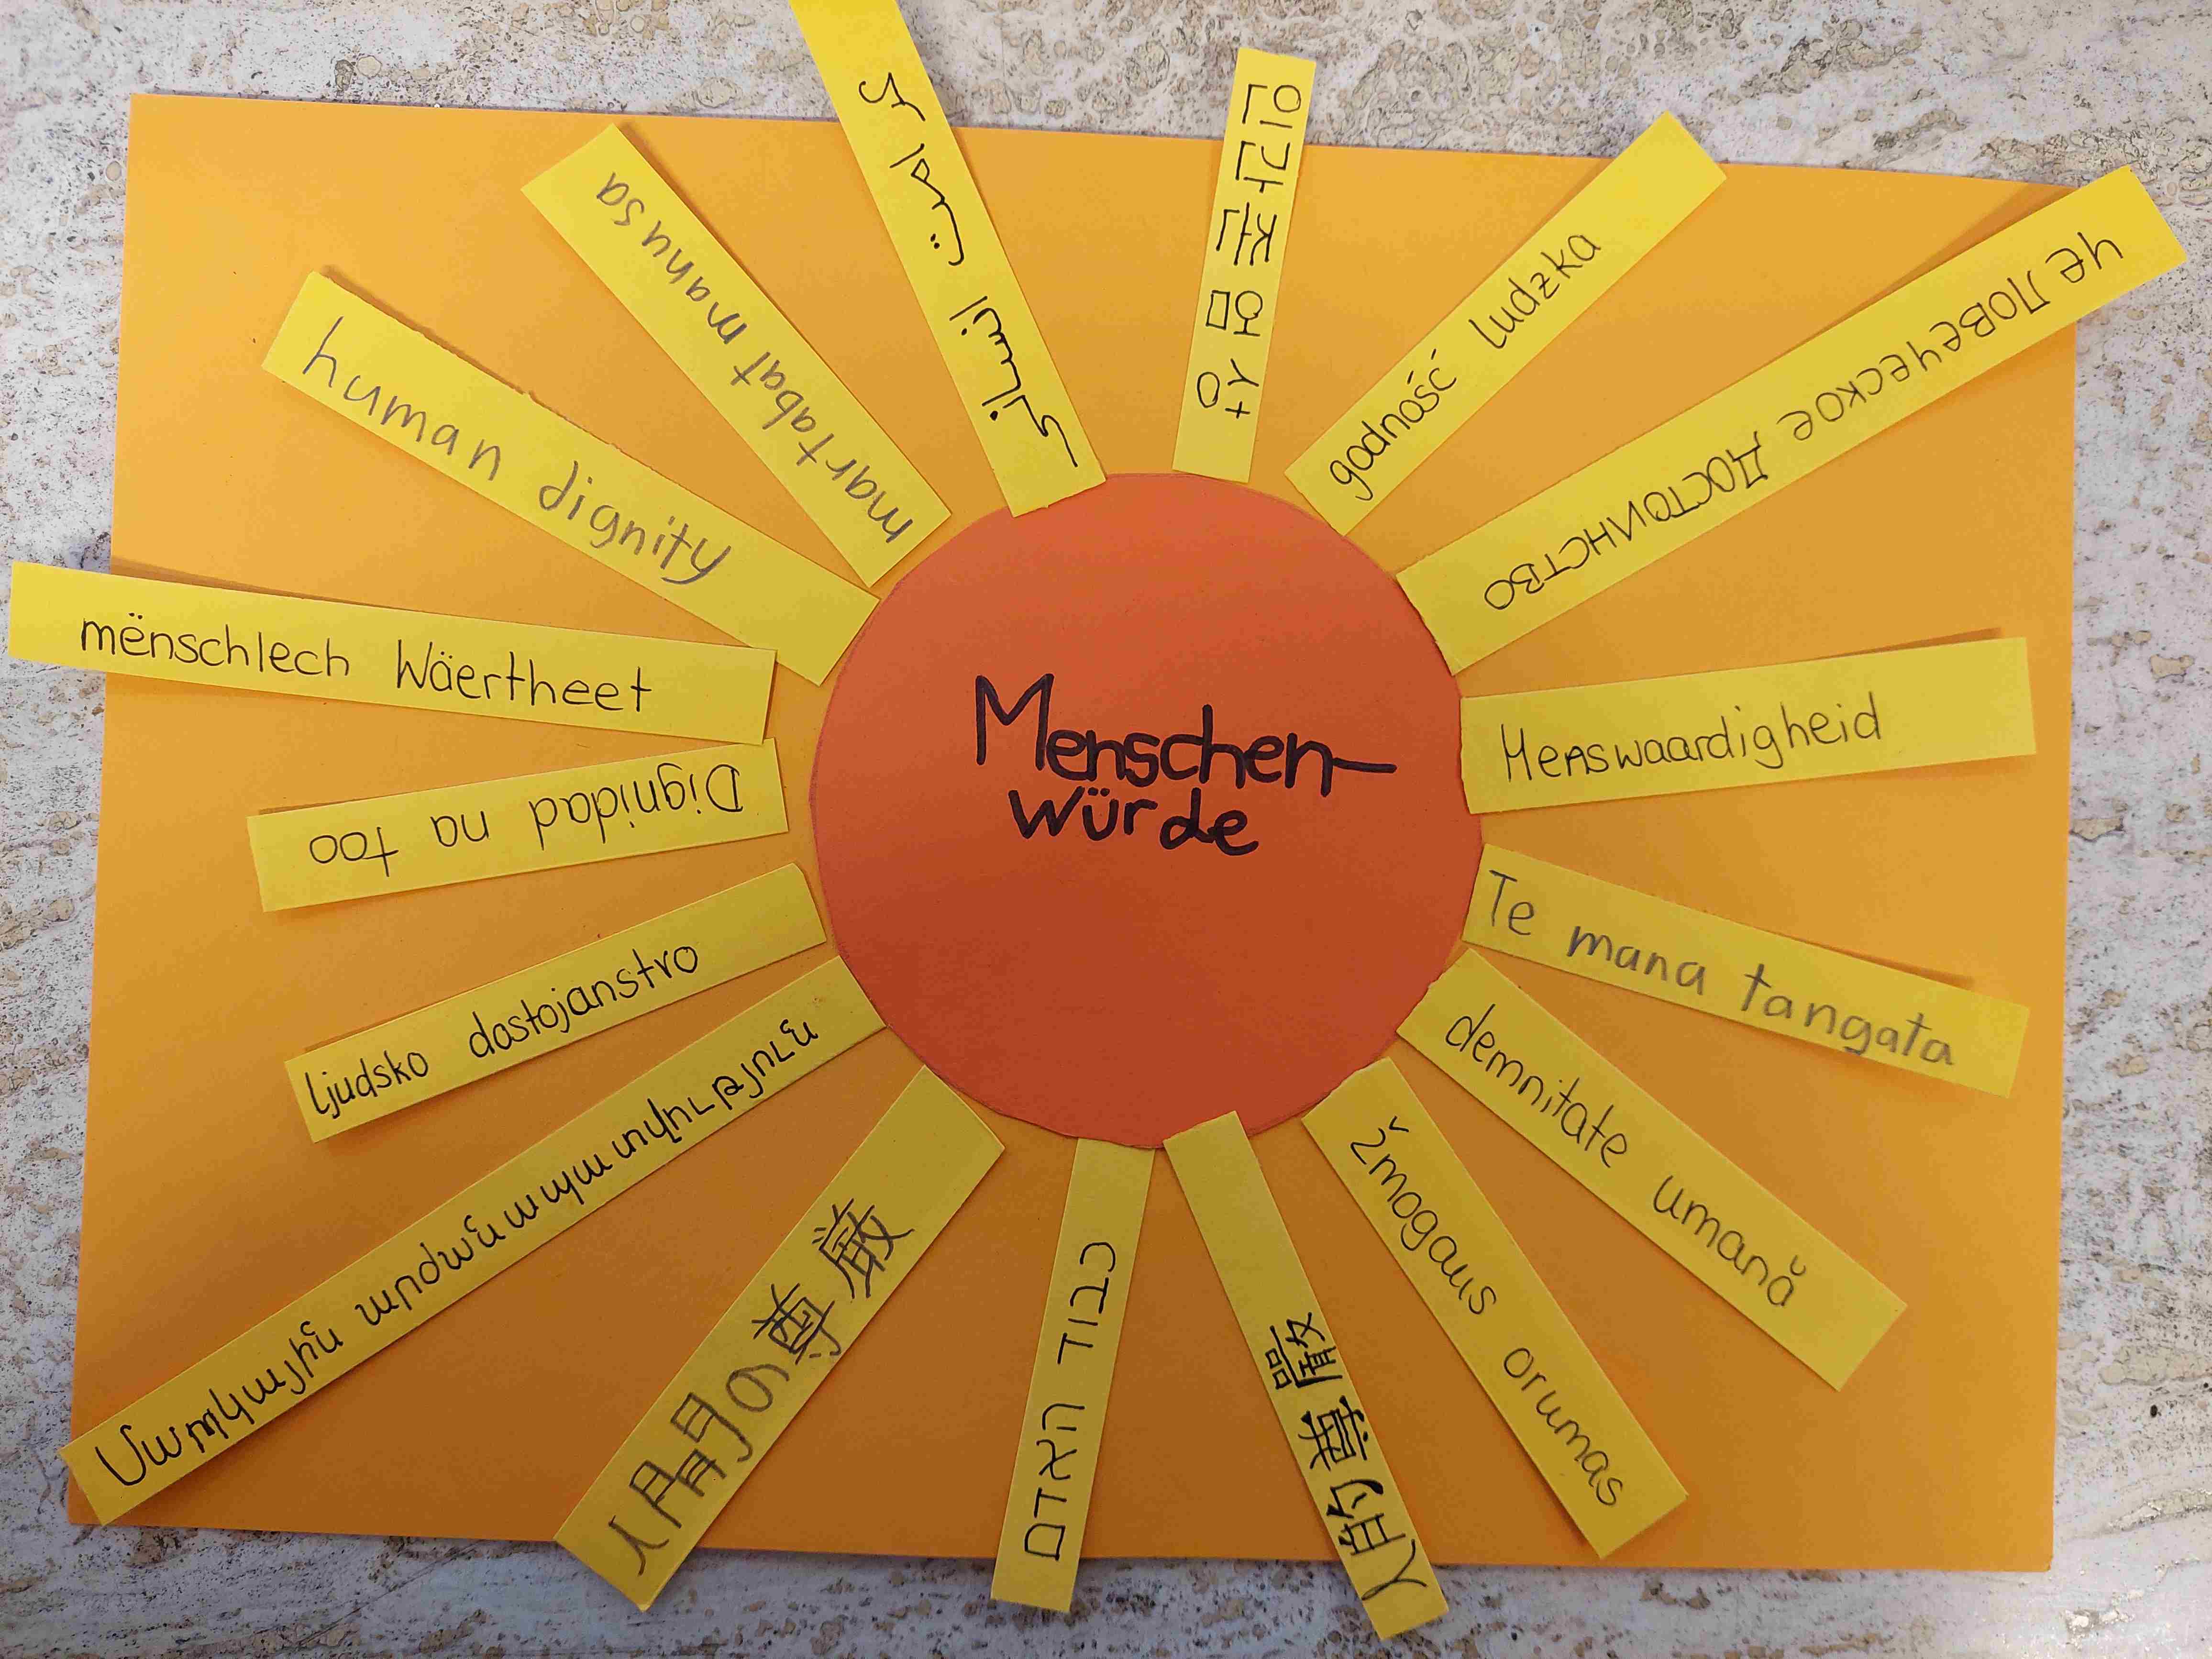 Menschen-
würde
کرامت انسانی
인간존엄성
godność ludzka
человеческое достоинство
Menswaardigheid
Te mana tangata
demnitate umană
Žmogaus orumas
כבוד האדם
人間の尊厳
ljudsko dostojanstro
Dignidad na too
mënschlech Wäertheet
human dignity
martabat manusa